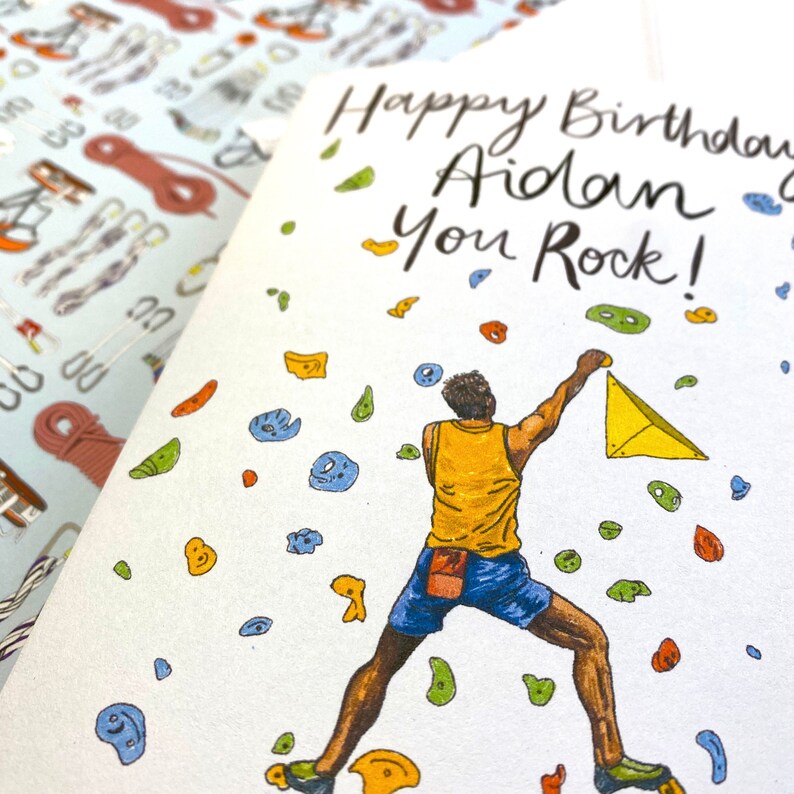 Happy Birthday
Aidan
You Rock!